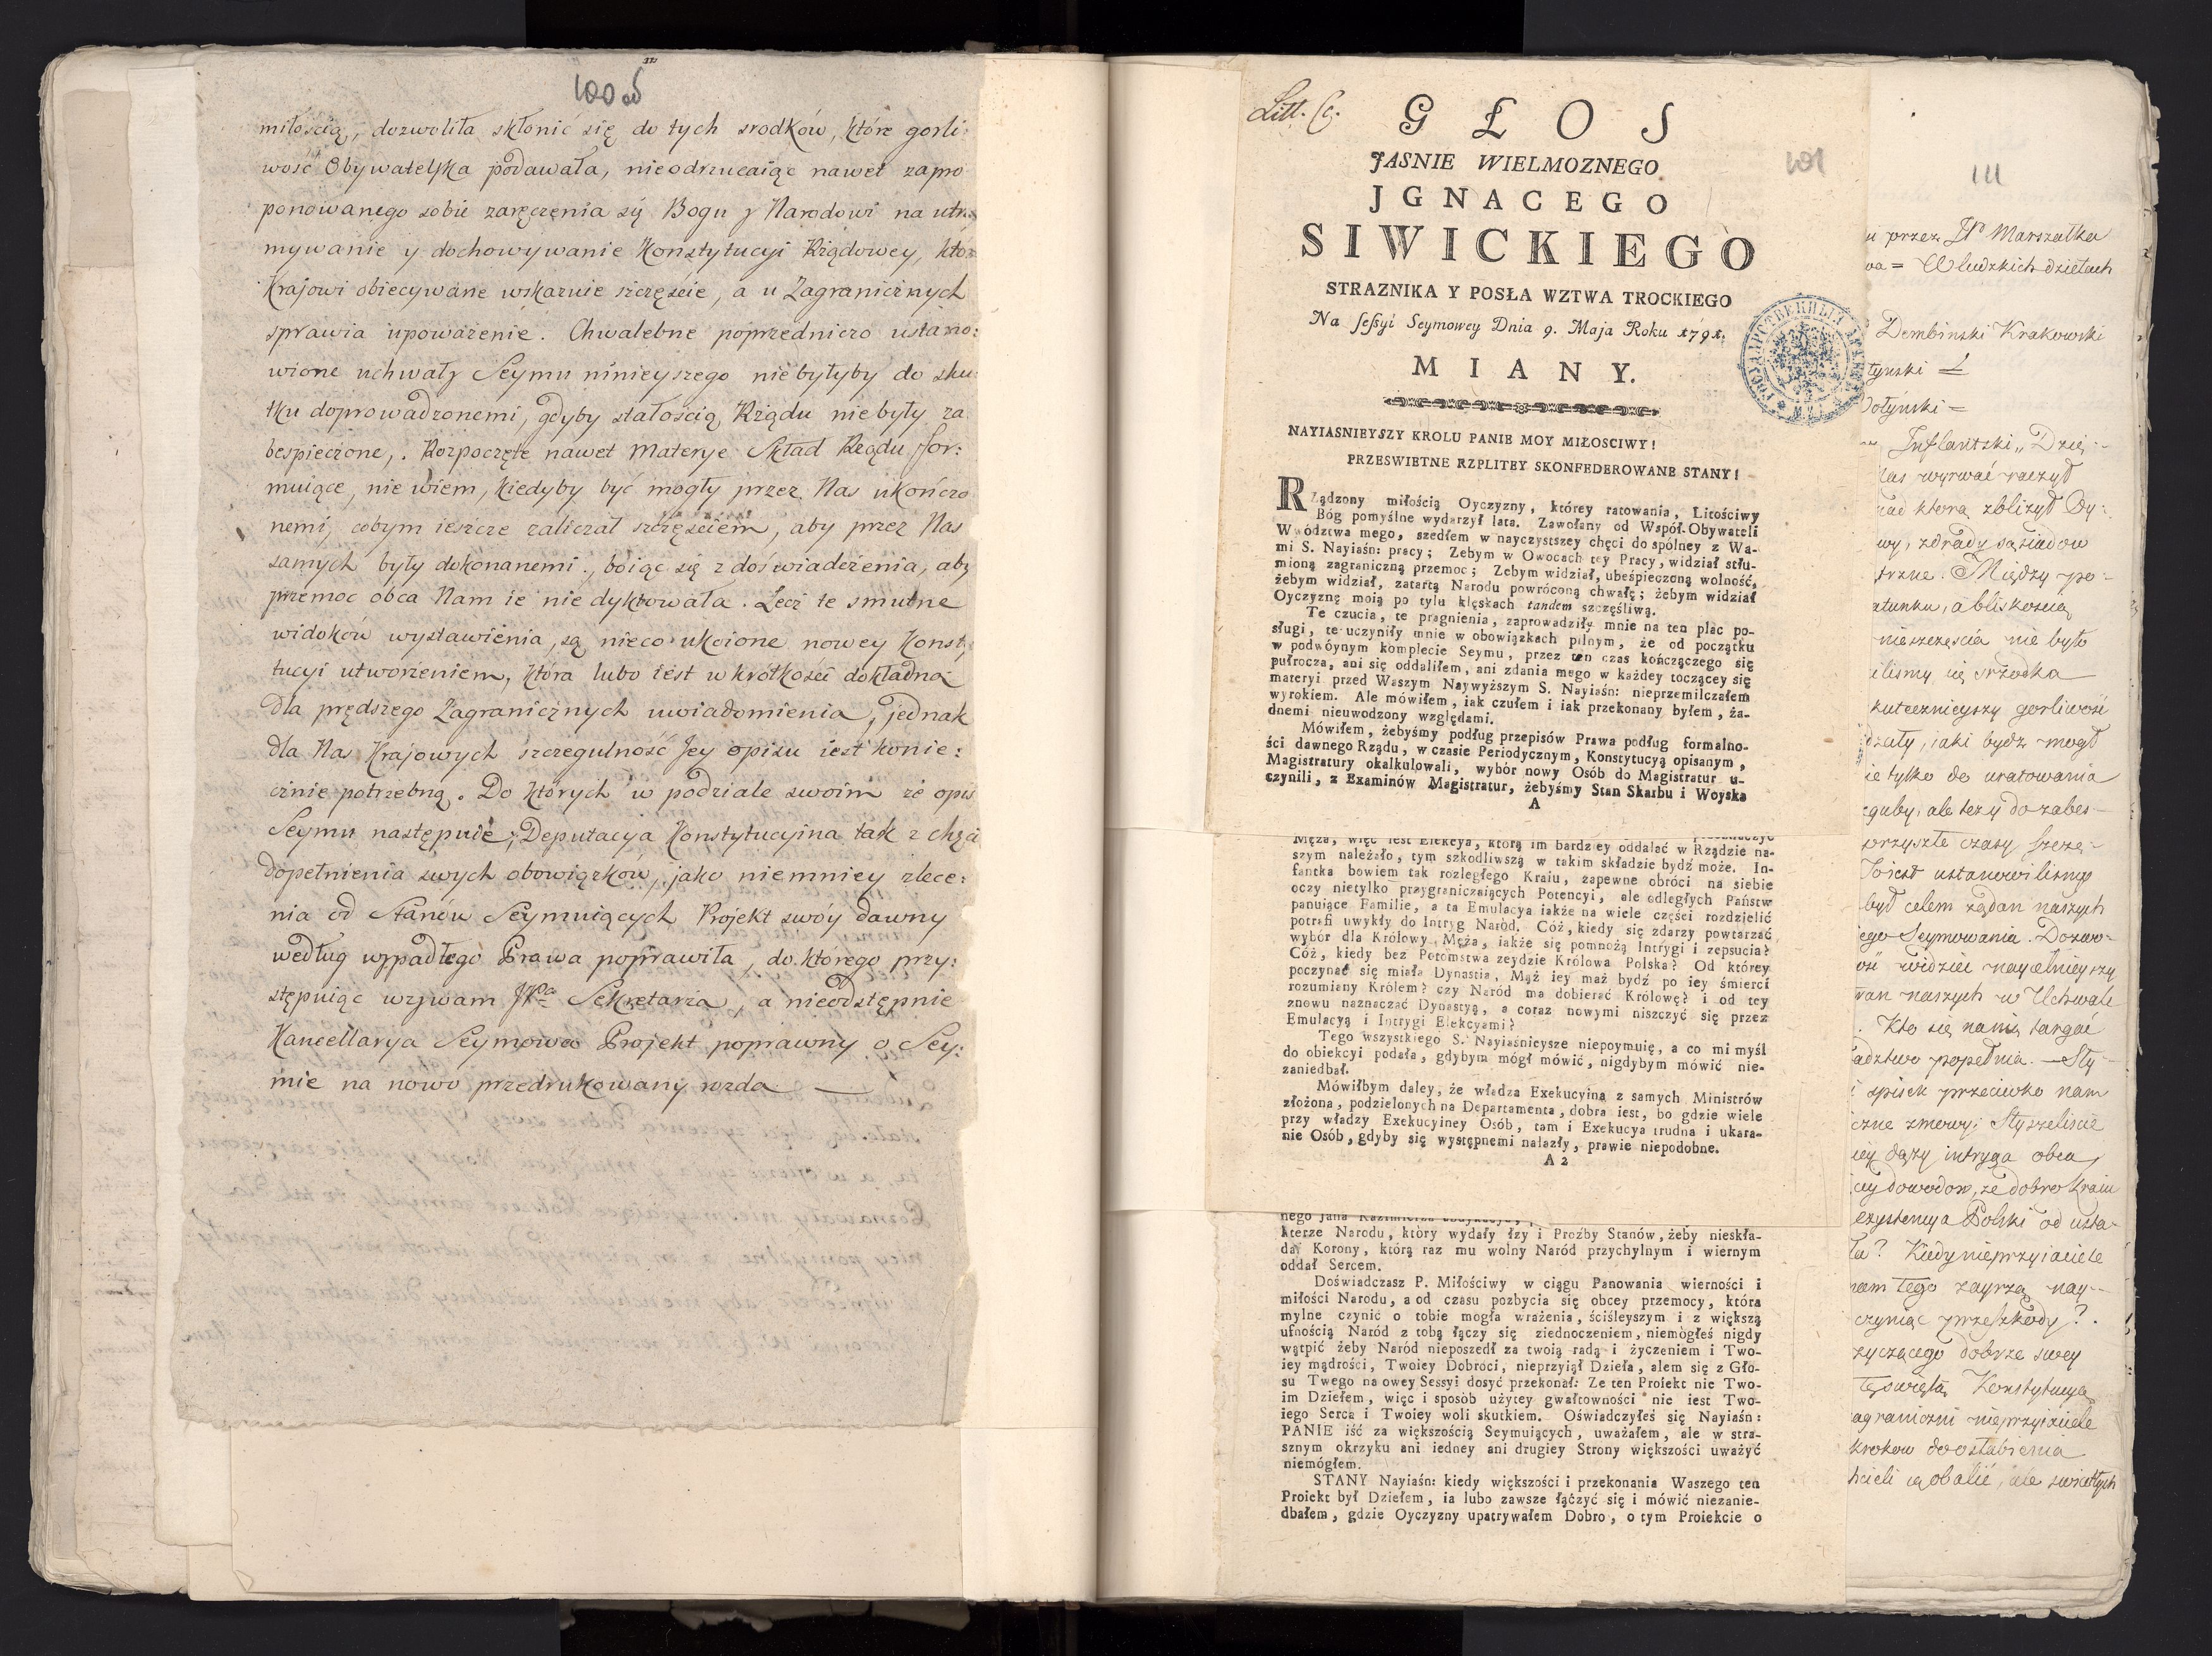 100 об
miłością, dozwoliła skłonić się do tych srodków, które gorli:
wość Obywatelska podawała, nieodrzucaiąc nawet zapro
ponowanego sobie zaręczenia się Bogu y Narodowi na utrz
mywanie y dochowywanie Konstytucyi Rządowey, któ
Krajowi obiecywane wskazuie szczęście, a u Zagranicznych
sprawia upoważenie. Chwalebne poprzedniczo ustano:
wione uchwały Seymu ninieyszego niebyłyby do sku:
tku doprowadzonemi, gdyby stałością Rządu niebyły za
bespieczone,. Rozpoczęte nawet Materye Skład Rządu for:
muiące, nie wiem, kiedyby być mogły przez Nas ukończo
nemi, cobym ieszcze zaliczał szczęściem, aby przez Nas
samych były dokonanemi., boiąc się z doświadczenia, aby
przemoc obca Nam ie nie dyktowała. Lecz te smutne
widoków wystawienia, są nieco ukoione nowey Konsty
tucyi utworzeniem, która lubo iest w krótkości dokładną
dla prędszego Zagranicznych uwiadomienia, jednak
dla Nas Krajowych szczegulność Jey opisu iest konie:
cznie potrzebną. Do których w podziale swoim że opis
Seymu następuie, Deputacya Konstytucyina tak z chęci
dopełnienia swych obowiązków, jako niemniey zlece:
nia od Stanów Seymuiących Projekt swóy dawny
według wypadłego Prawa poprawiła, do którego przy:
stępuiąc wzywam JPa Sekretarza, a nieodstępnie
Kancellarya Seymowa Projekt poprawny o Sey:
mie na nowo przedrukowany rozda —
Litt. C.
GŁOS
JASNIE WIELMOZNEGO
JGNACEGO
SIWICKIEGO
STRAZNIKA Y POSŁA WZTWA TROCKIEGO
Na sessyi Seymowey Dnia 9. Maja Roku 1791.
MIANY.
101
NAYIASNIEYSZY KROLU PANIE MOY MIŁOSCIWY!
PRZESWIETNE RZPLITEY SKONFEDEROWANE STANY!
Rządzony miłością Oyczyzny, którey ratowania, Litościwy
Bóg pomyślne wydarzył lata. Zawołany od Współ-Obywateli
Wwództwa mego, szedłem w nayczystszey chęci do spólney z Wa-
mi S. Nayiaśn: pracy; Zebym w Owocach tey Pracy, widział stłu-
mioną zagraniczną przemoc; Zebym widział, ubeśpieczoną wolność,
żebym widział, zatartą Narodu powróconą chwałę; żebym widział
Oyczyznę moią po tylu klęskach tandem szczęśliwą.
Te czucia, te pragnienia, zaprowadziły mnie na ten plac po-
sługi, te uczyniły mnie w obowiązkach pilnym, że od początku
w podwóynym komplecie Seymu, przez ten czas kończącego się
pułrocza, ani się oddaliłem, ani zdania mego w każdey toczącey się
materyi przed Waszym Naywyższym S. Nayiaśn: nieprzemilczałem
wyrokiem. Ale mówiłem, iak czułem i iak przekonany byłem, ża-
dnemi nieuwodzony względami.
Mówiłem, żebyśmy podług przepisów Prawa podług formalno-
ści dawnego Rządu, w czasie Periodycznym, Konstytucyą opisanym,
Magistratury okalkulowali, wybór nowy Osób do Magistratur u-
czynili, z Examinów Magistratur, żebyśmy Stan Skarbu i Woyska
A
Męża, więc iest Elekcya, którą im bardziey oddalać w Rządzie na-
szym należało, tym szkodliwszą w takim składzie bydź może. In-
fantka bowiem tak rozległego Kraiu, zapewne obróci na siebie
oczy nietylko przygraniczniących Potencyi, ale odległych Państw
panuiące Familie, a ta Emulacya iakże na wiele części rozdzielić
potrafi uwykły do Intryg Naród. Cóż, kiedy się zdarzy powtarzać
wybór dla Królowy Męża, iakże się pomnożą Intrygi i zepsucia?
Cóż, kiedy bez Potomstwa zeydzie Królowa Polska? Od którey
poczynać się miała Dynastia, Mąż iey maż bydź po iey śmierci
rozumiany Królem? czy Naród ma dobierać Królowę? i od tey
znowu naznaczać Dynastyą, a coraz nowymi niszczyć się przez
Emulacyą i Intrygi Elekcyami?
Tego wszystkiego S. Nayiaśnieysze niepoymuię, a co mi myśl
do obiekcyi podała, gdybym mógł mówić, nigdybym mówić nie-
zaniedbał.
Mówiłbym daley, że władza Exekucyina z samych Ministrów
złożona, podzielonych na Departamenta, dobra iest, bo gdzie wiele
przy władzy Exekucyiney Osób, tam i Exekucya trudna i ukara-
nie Osób, gdyby się występnemi nalazły, prawie niepodobne.
A 2
nego Jana Kazimierza
kterze Narodu, który wydały łzy i Proźby Stanów, żeby nieskła-
dał Korony, którą raz mu wolny Naród przychylnym i wiernym
oddał Sercem.
Doświadczasz P. Miłościwy w ciągu Panowania wierności i
miłości Narodu, a od czasu pozbycia się obcey przemocy, która
mylne czynić o tobie mogła wrażenia, ściśleyszym i z większą
ufnością Naród z tobą łączy się ziednoczeniem, niemógłeś nigdy
wątpić żeby Naród nieposzedł za twoią radą i życzeniem i Two-
iey mądrości, Twoiey Dobroci, nieprzyiął Dzieła, alem się z Gło-
su Twego na owey Sessyi dosyć przekonał: Ze ten Proiekt nie Two-
im Dziełem, więc i sposób użytey gwałtowności nie iest Two-
iego Serca i Twoiey woli skutkiem. Oświadczyłeś się Nayiaśn:
PANIE iść za większością Seymuiących, uważałem, ale w stra-
sznym okrzyku ani iedney ani drugiey Strony większości uważyć
niemógłem.
STANY Nayiaśn: kiedy większości i przekonania Waszego ten
Proiekt był Dziełem, ia lubo zawsze łączyć się i mówić niezanie-
dbałem, gdzie Oyczyzny upatrywałem Dobro, o tym Proiekcie o
111
przez JP Marszałka
= W ludzkich dziełach
Dembinski Krakowski
Inflantski „ Dzię
nas wyrwać raczył
nad którą zbliżył Oy:
zdrady sąsiadow
Między po-
ratunku, a bliskością
nieszczęscia nie było
srzodka
gorliwość
iaki bydz mogł
ie tylko do uratowania
zguby, ale też y do zabes-
przyszłe czasy szczę-
To iest ustanowilismy
był celem rządan naszych
ego Seymowania. Dozwo-
widziec naycelnieyszy
naszych w Uchwale
. Kto się na nią targać
popełnia. — Sły-
spisek przeciwko nam
czne zmowy; Słyszeliscie
iey dąży intryga obca,
dowodow, ze dobro Kraiu
exystencya Polski od usta-
ła? Kiedy nieprzyiaciele
nam tego zayrzą nay-
czyniąc przeszkody?.
życzącego dobrze swey
tę swiętą Konstytucyą
agraniczni nieprzyiaciele
krokow do osłabienia
hcieli ią obalić, ale swiatłych